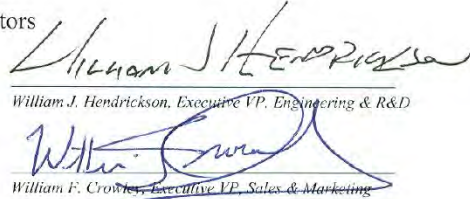 tors
William J Hendrickson
William J. Hendrickson, Executive VP, Engineering & R&D
William F. Crowley, Executive VP, Sales & Marketing